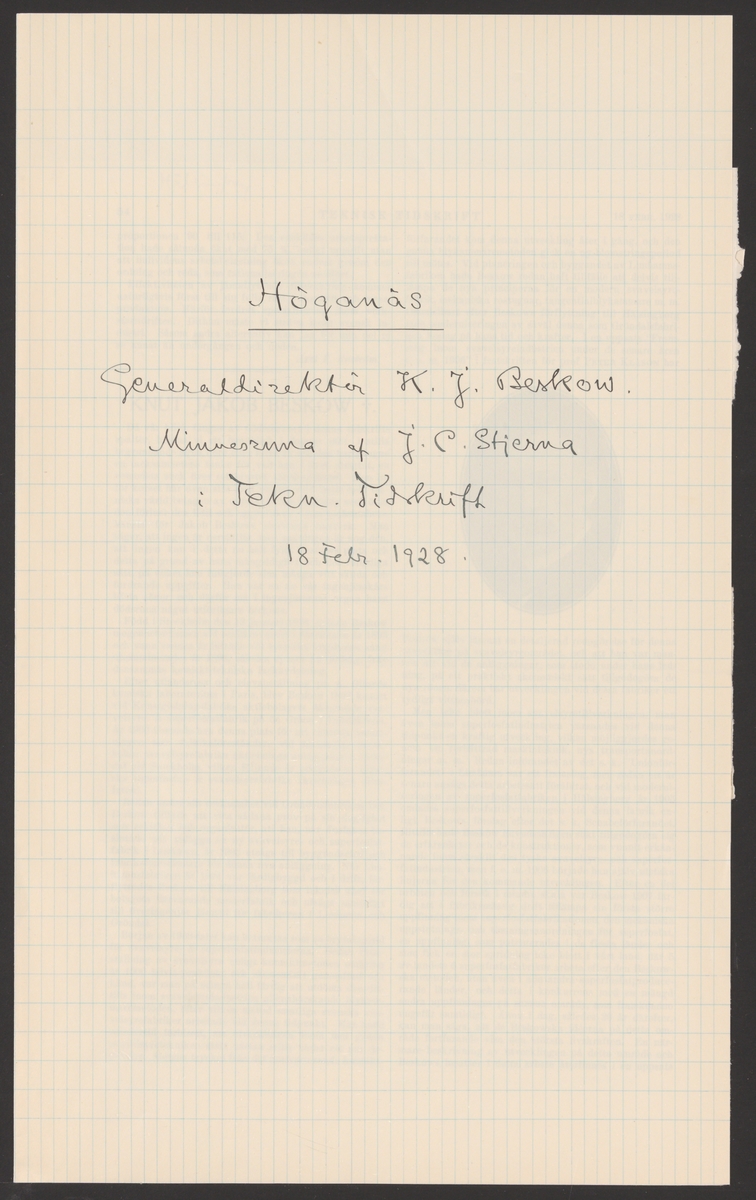 Höganäs
Generaldirektör K. J. Beskow.
Minnesruna af J. C. Stjerna
i Tekn. Tidskrift
18 Febr. 1928.